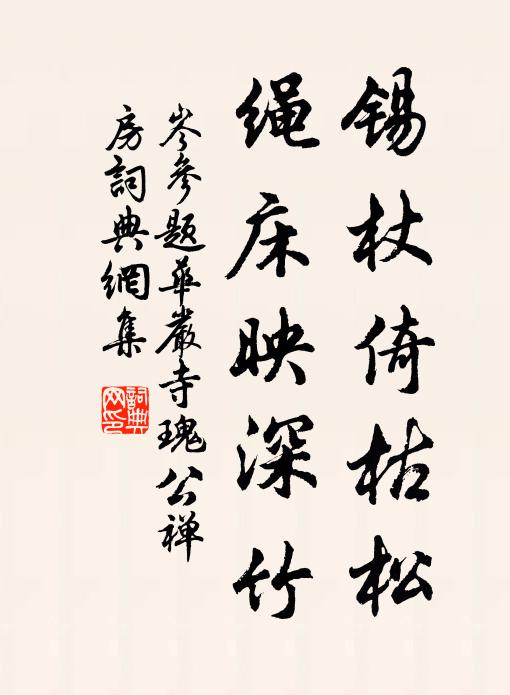 锡杖倚枯松
绳床映深竹
岑参题华嚴寺瑰公禅
房詞典網集
詞典网印